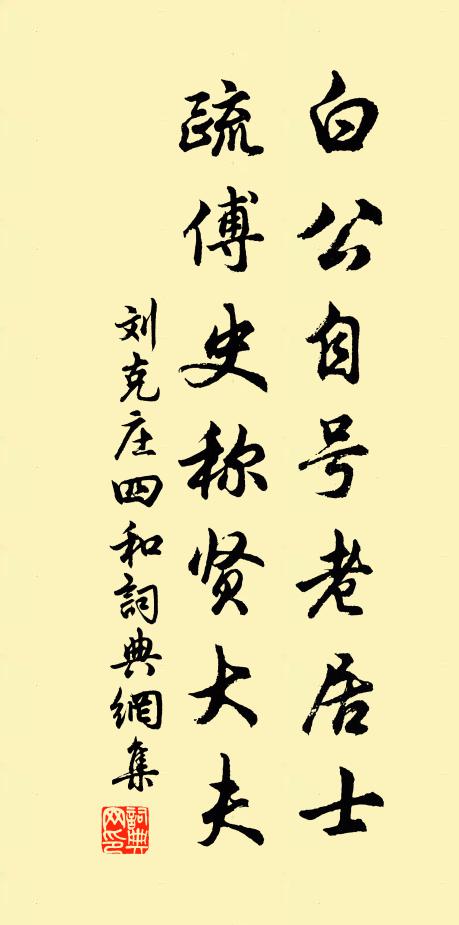 白公自号老居士
疏傅史称贤大夫
刘克庄四和詞典網集
詞典网印